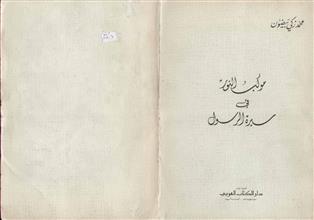 محمد زكي بيضون
موكب النور
في
سيرة الرسول
دار الكتاب العربي